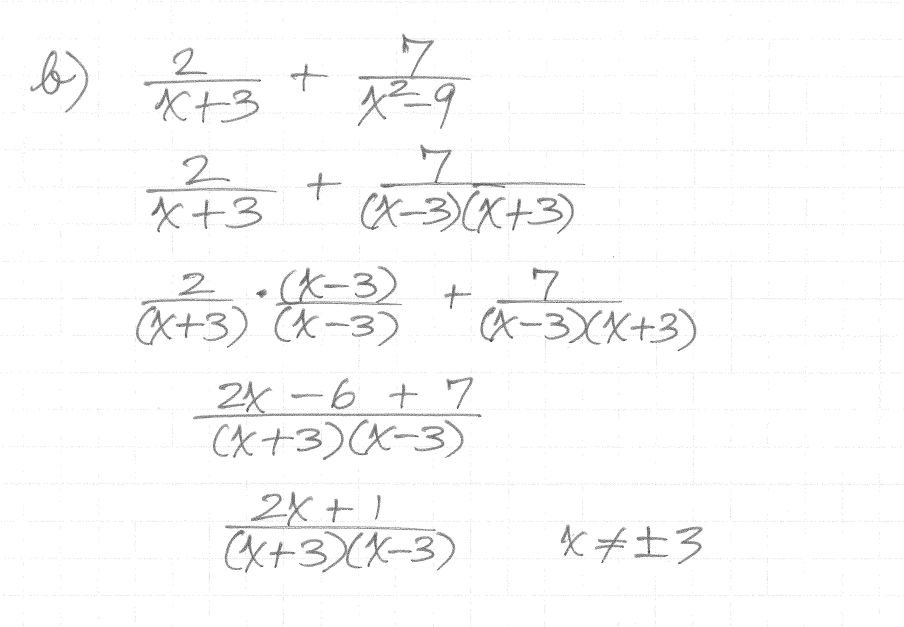 b) 2/(x+3) + 7/(x²-9)
2/(x+3) + 7/((x-3)(x+3))
2/(x+3) · (x-3)/(x-3) + 7/((x-3)(x+3))
(2x - 6 + 7)/((x+3)(x-3))
(2x + 1)/((x+3)(x-3)) x ≠ ±3